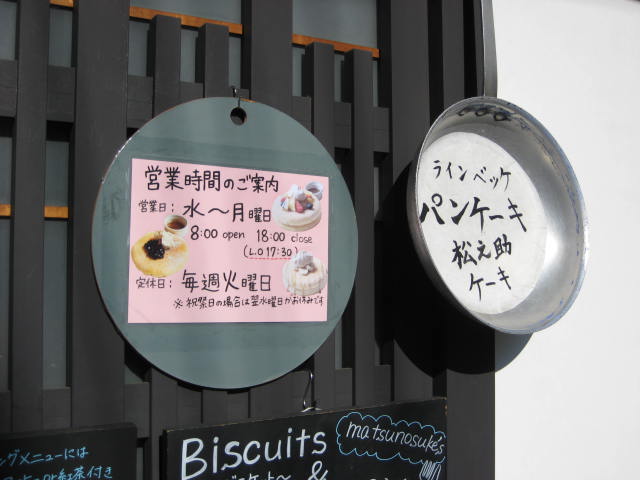 営業時間のご案内
営業日：水～月曜日
8:00 open 18:00 close
(L.O 17:30)
定休日：毎週火曜日
※祝祭日の場合は翌水曜日がお休みです
ラインベッケ
パンケーキ
松之助
ケーキ
Biscuits
&
matsunosuke's
メニューには
紅茶付き